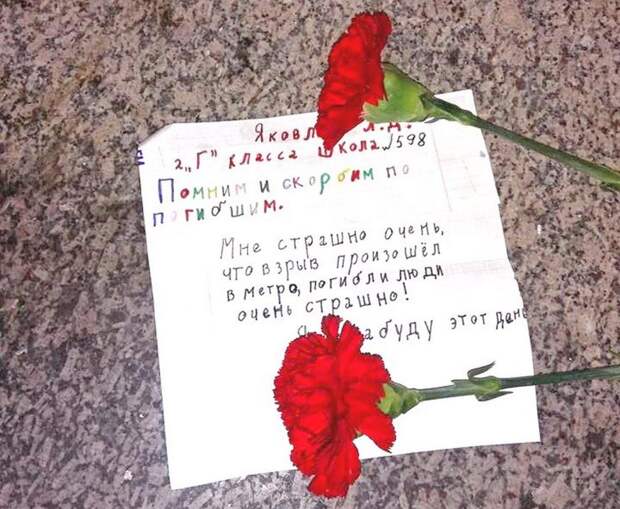 Л.Д.
2 „Г" класса школа №598
Помним и скорбим по
погибшим.
Мне страшно очень,
что взрыв произошёл
в метро, погибли люди
очень страшно!
этот день